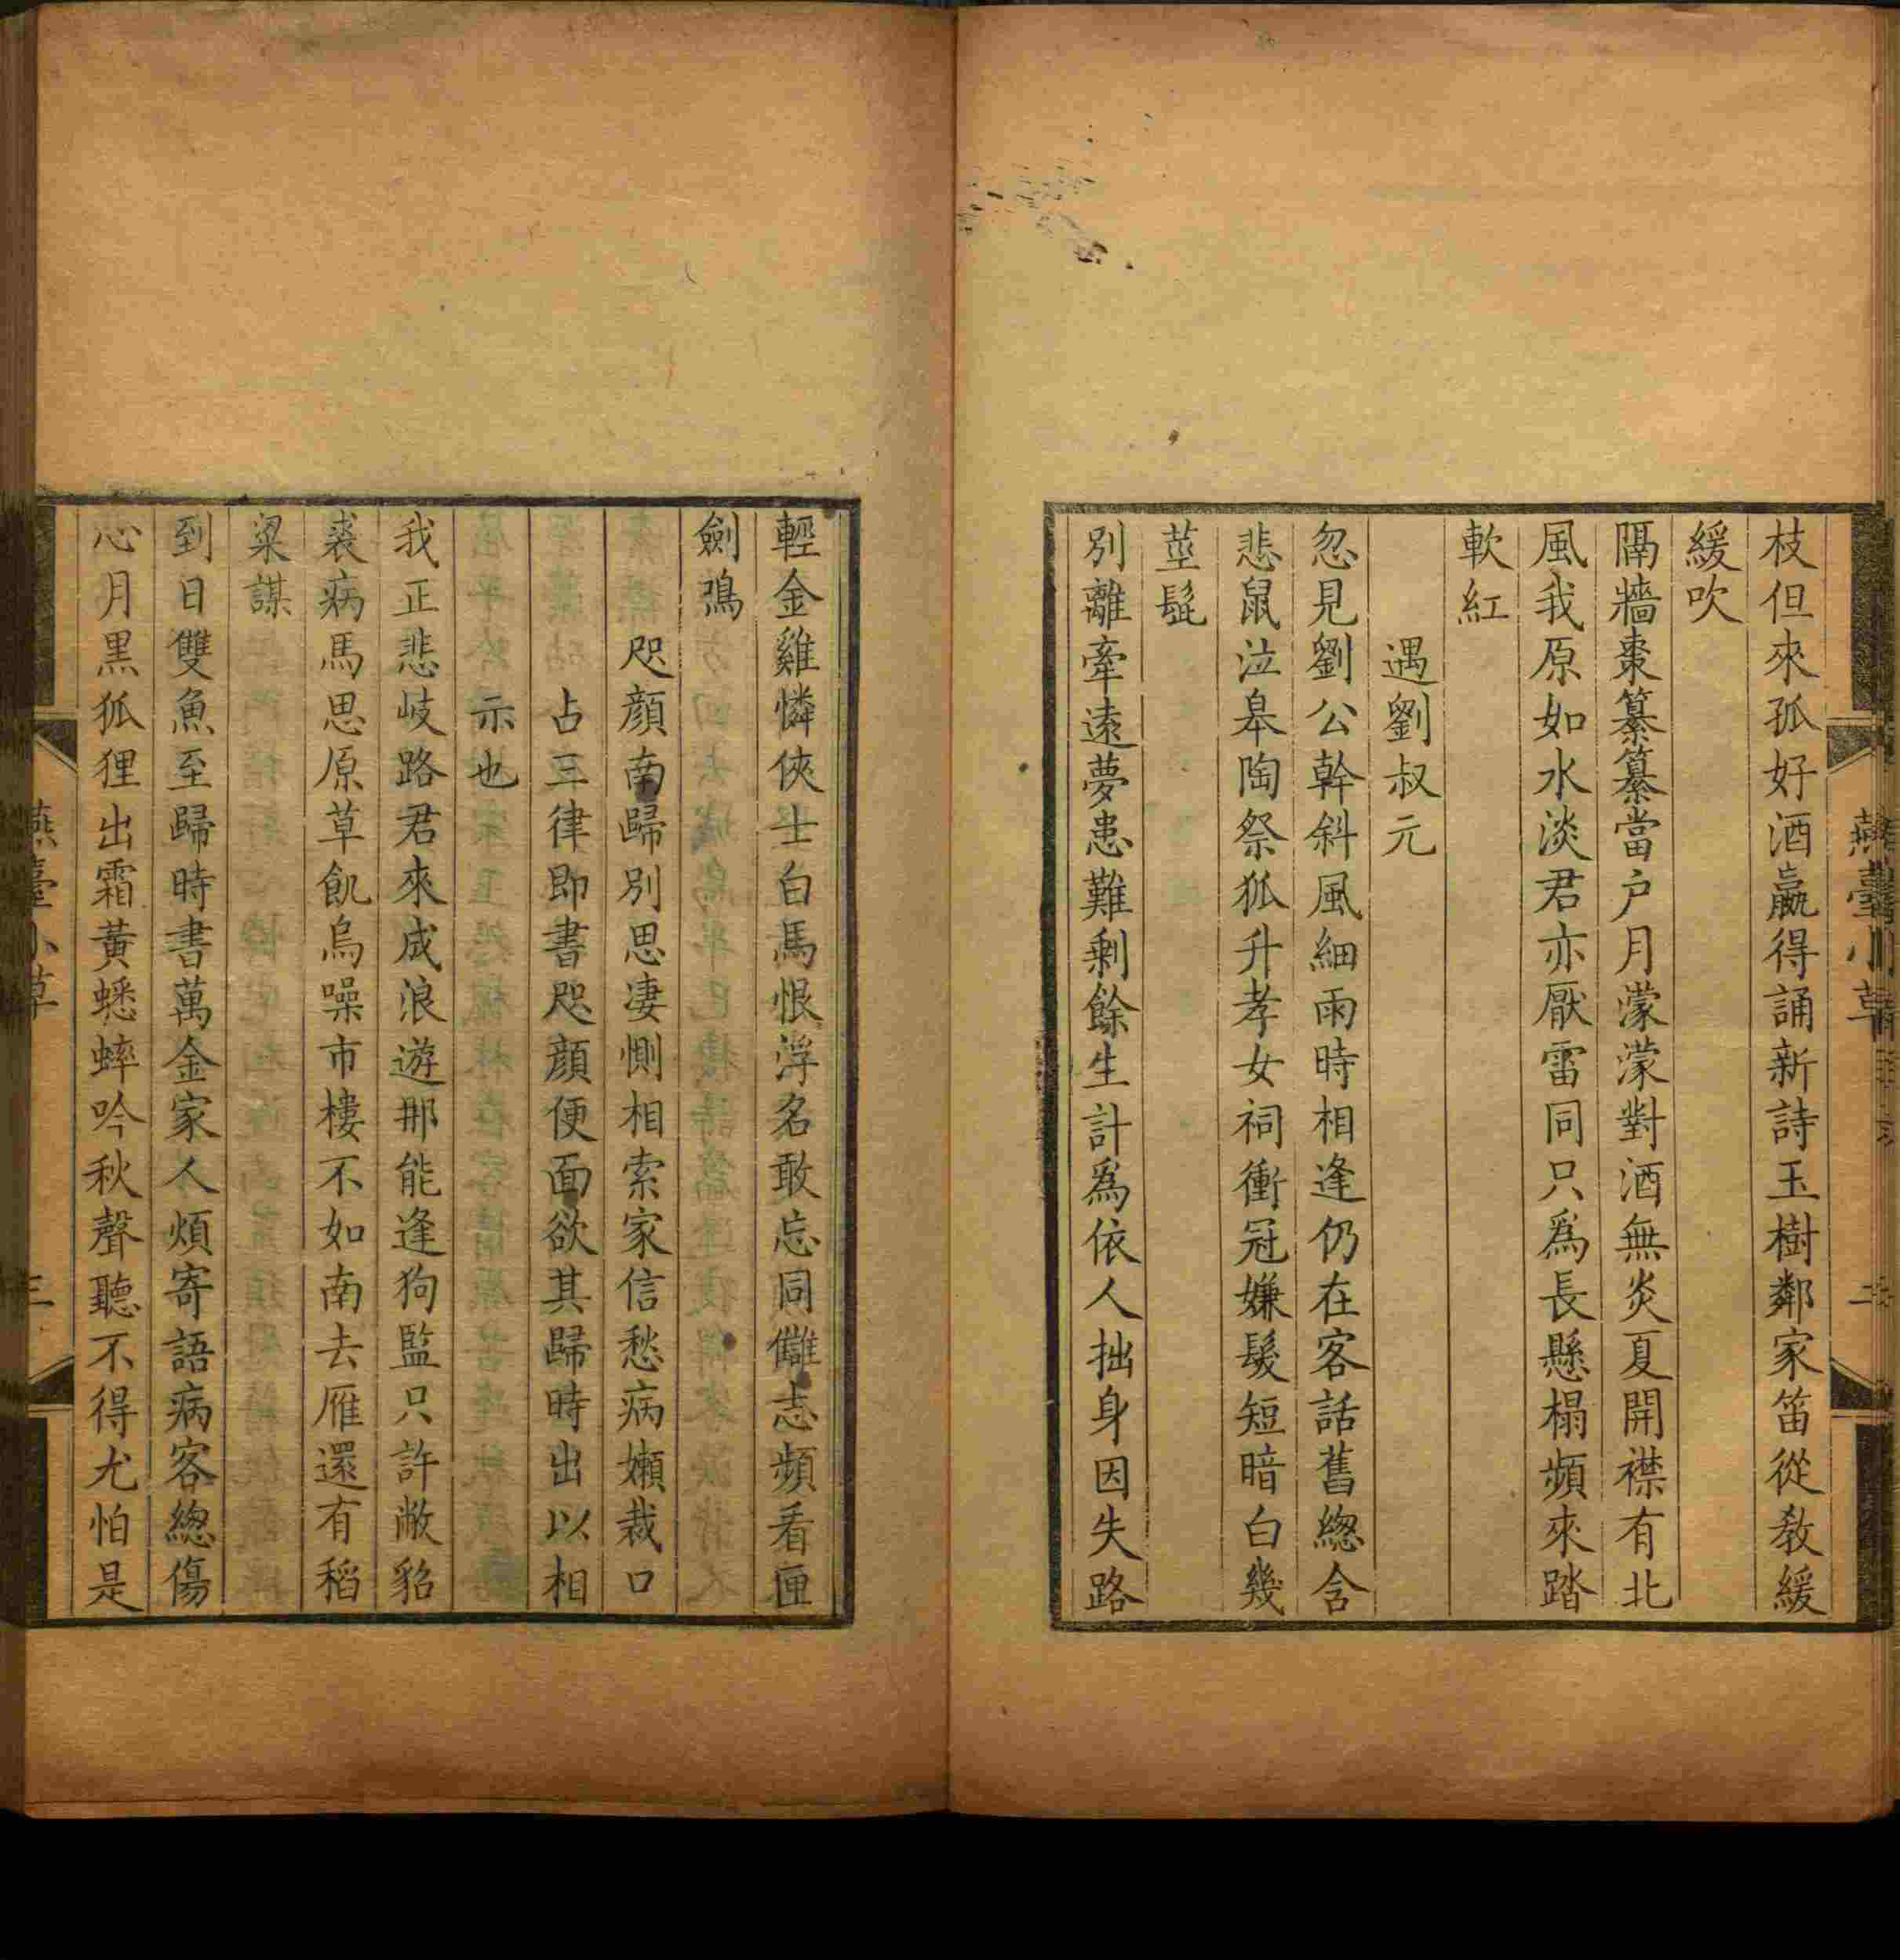 燕臺小草
二
枝但來孤好酒贏得誦新詩玉樹鄰家笛從教緩
緩吹
隔牆棗纂纂當户月濛濛對酒無炎夏開襟有北
風我原如水淡君亦厭雷同只爲長懸榻頻來踏
軟紅
遇劉叔元
忽見劉公幹斜風細雨時相逢仍在客話舊總含
悲鼠泣皋陶祭狐升孝女祠衝冠嫌髮短暗白幾
莖髭
別離牽遠夢患難剩餘生計爲依人拙身因失路
輕金雞憐俠士白馬恨浮名敢忘同讎志頻看匣
劍鳴
咫顏南歸別思凄惻相索家信愁病嬾裁口
占三律即書咫顏便面欲其歸時出以相
示也
我正悲岐路君來成浪遊那能逢狗監只許敝貂
裘病馬思原草飢烏噪市樓不如南去雁還有稻
粱謀
到日雙魚至歸時書萬金家人煩寄語病客總傷
心月黑狐狸出霜黃蟋蟀吟秋聲聽不得尤怕是
燕臺小草
三